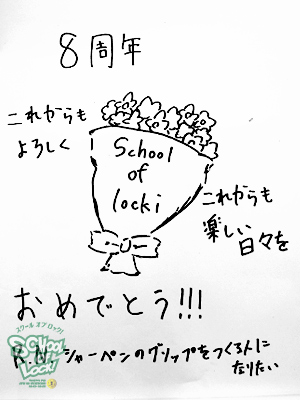 8周年
これからも
よろしく
School
of
locki
これからも
楽しい
日々を
おめでとう!!!
スクール オブ ロック!
SCHOOL
OF
LOCK!
R.N. シャーペンのグリップをつくる人に
なりたい